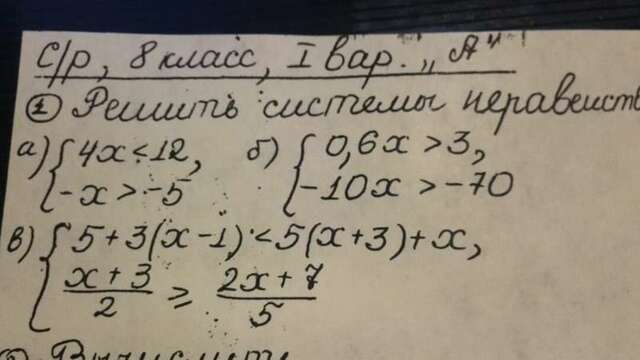 С/р, 8 класс, I вар. „А"
① Решить системы неравенств
а) { 4x < 12, б) { 0,6x > 3,
-x > -5 -10x > -70
в) { 5 + 3(x - 1) < 5(x + 3) + x,
(x + 3)/2 ≥ (2x + 7)/5